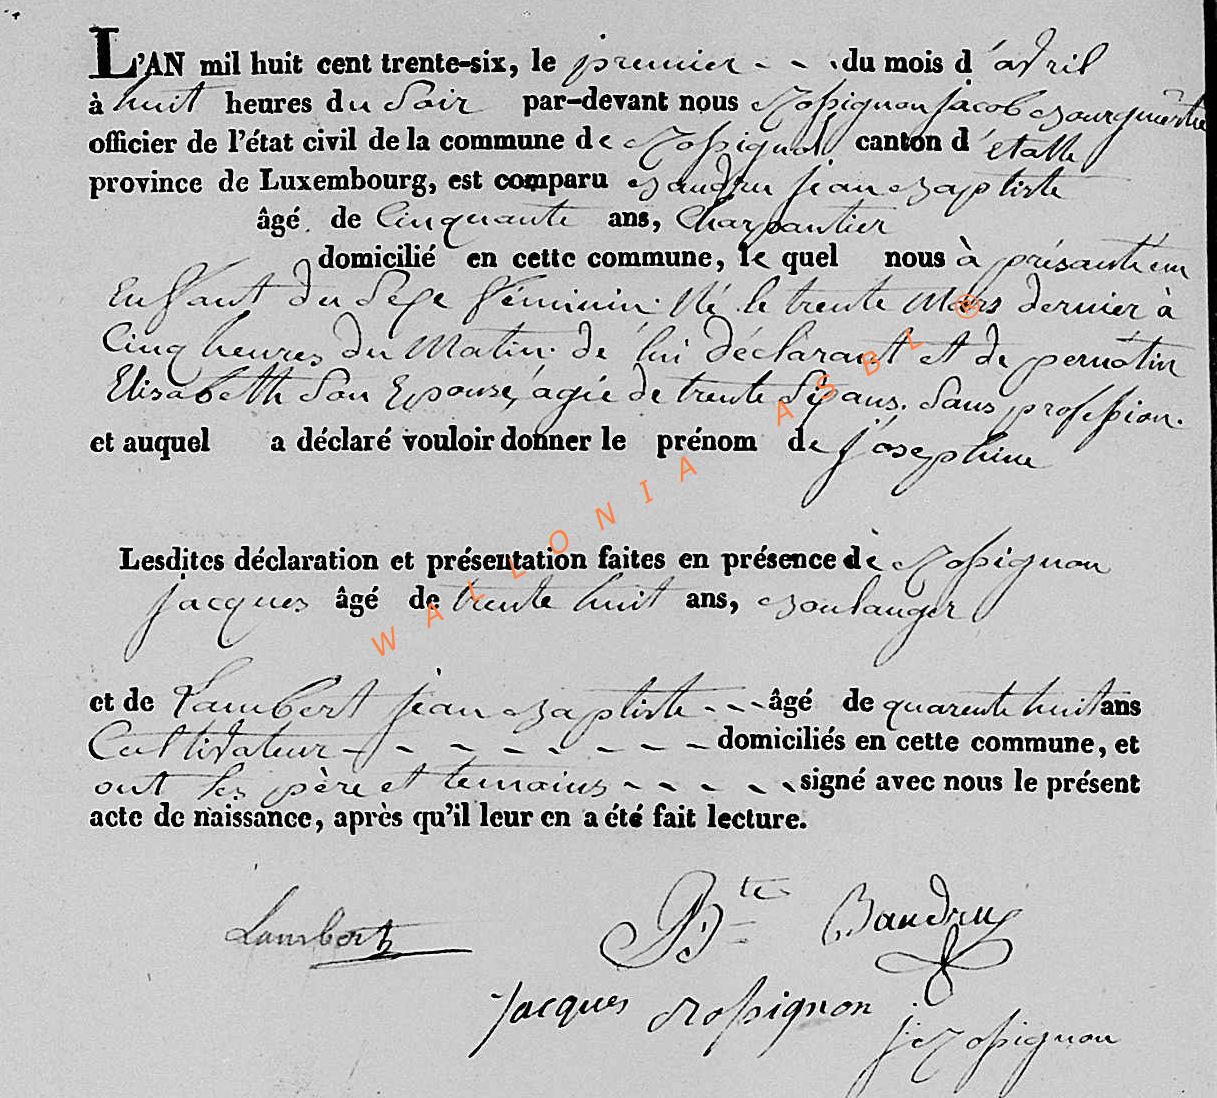 L'AN mil huit cent trente-six, le premier - - . du mois d'avril
à huit heures du Soir par-devant nous Rossignon jacob Bourguemetre
officier de l'état civil de la commune de Rossignol canton d'étalle
province de Luxembourg, est comparu Baudru jean Baptiste
âgé de Cinquante ans, Charpantier
domicilié en cette commune, le quel nous à présanté un
Enfant du Sexe féminin. Né le trente Mars dernier à
Cinq heures du Matin. de lui déclarant et de pernotin
Elisabeth Son Epouse, agée de trente Six ans. Sans profession.
et auquel a déclaré vouloir donner le prénom de josephine
Lesdites déclaration et présentation faites en présence de Rossignon
jacques âgé de trente huit ans, Boulanger
et de Lambert jean Baptiste - - - âgé de quarente huit ans
Cultivateur - - - - - - - - domiciliés en cette commune, et
ont les père et temoins - - - - - signé avec nous le présent
acte de naissance, après qu'il leur en a été fait lecture.
Lambert Bte Baudrux
Jacques Rossignon
j: Rossignon
WALLONIA ASBL ®